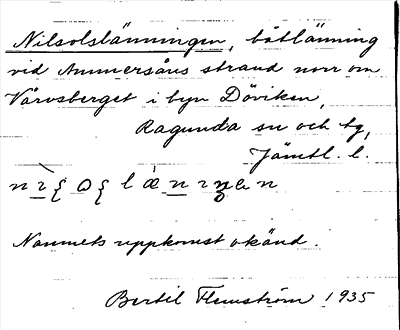 Nilsolslänningen, båtlänning
vid Ammersåns strand norr om
Vårosberget i byn Döviken,
Ragunda sn och tg,
Jämtl. l.
Namnets uppkomst okänd.
Bertil Flemström 1935